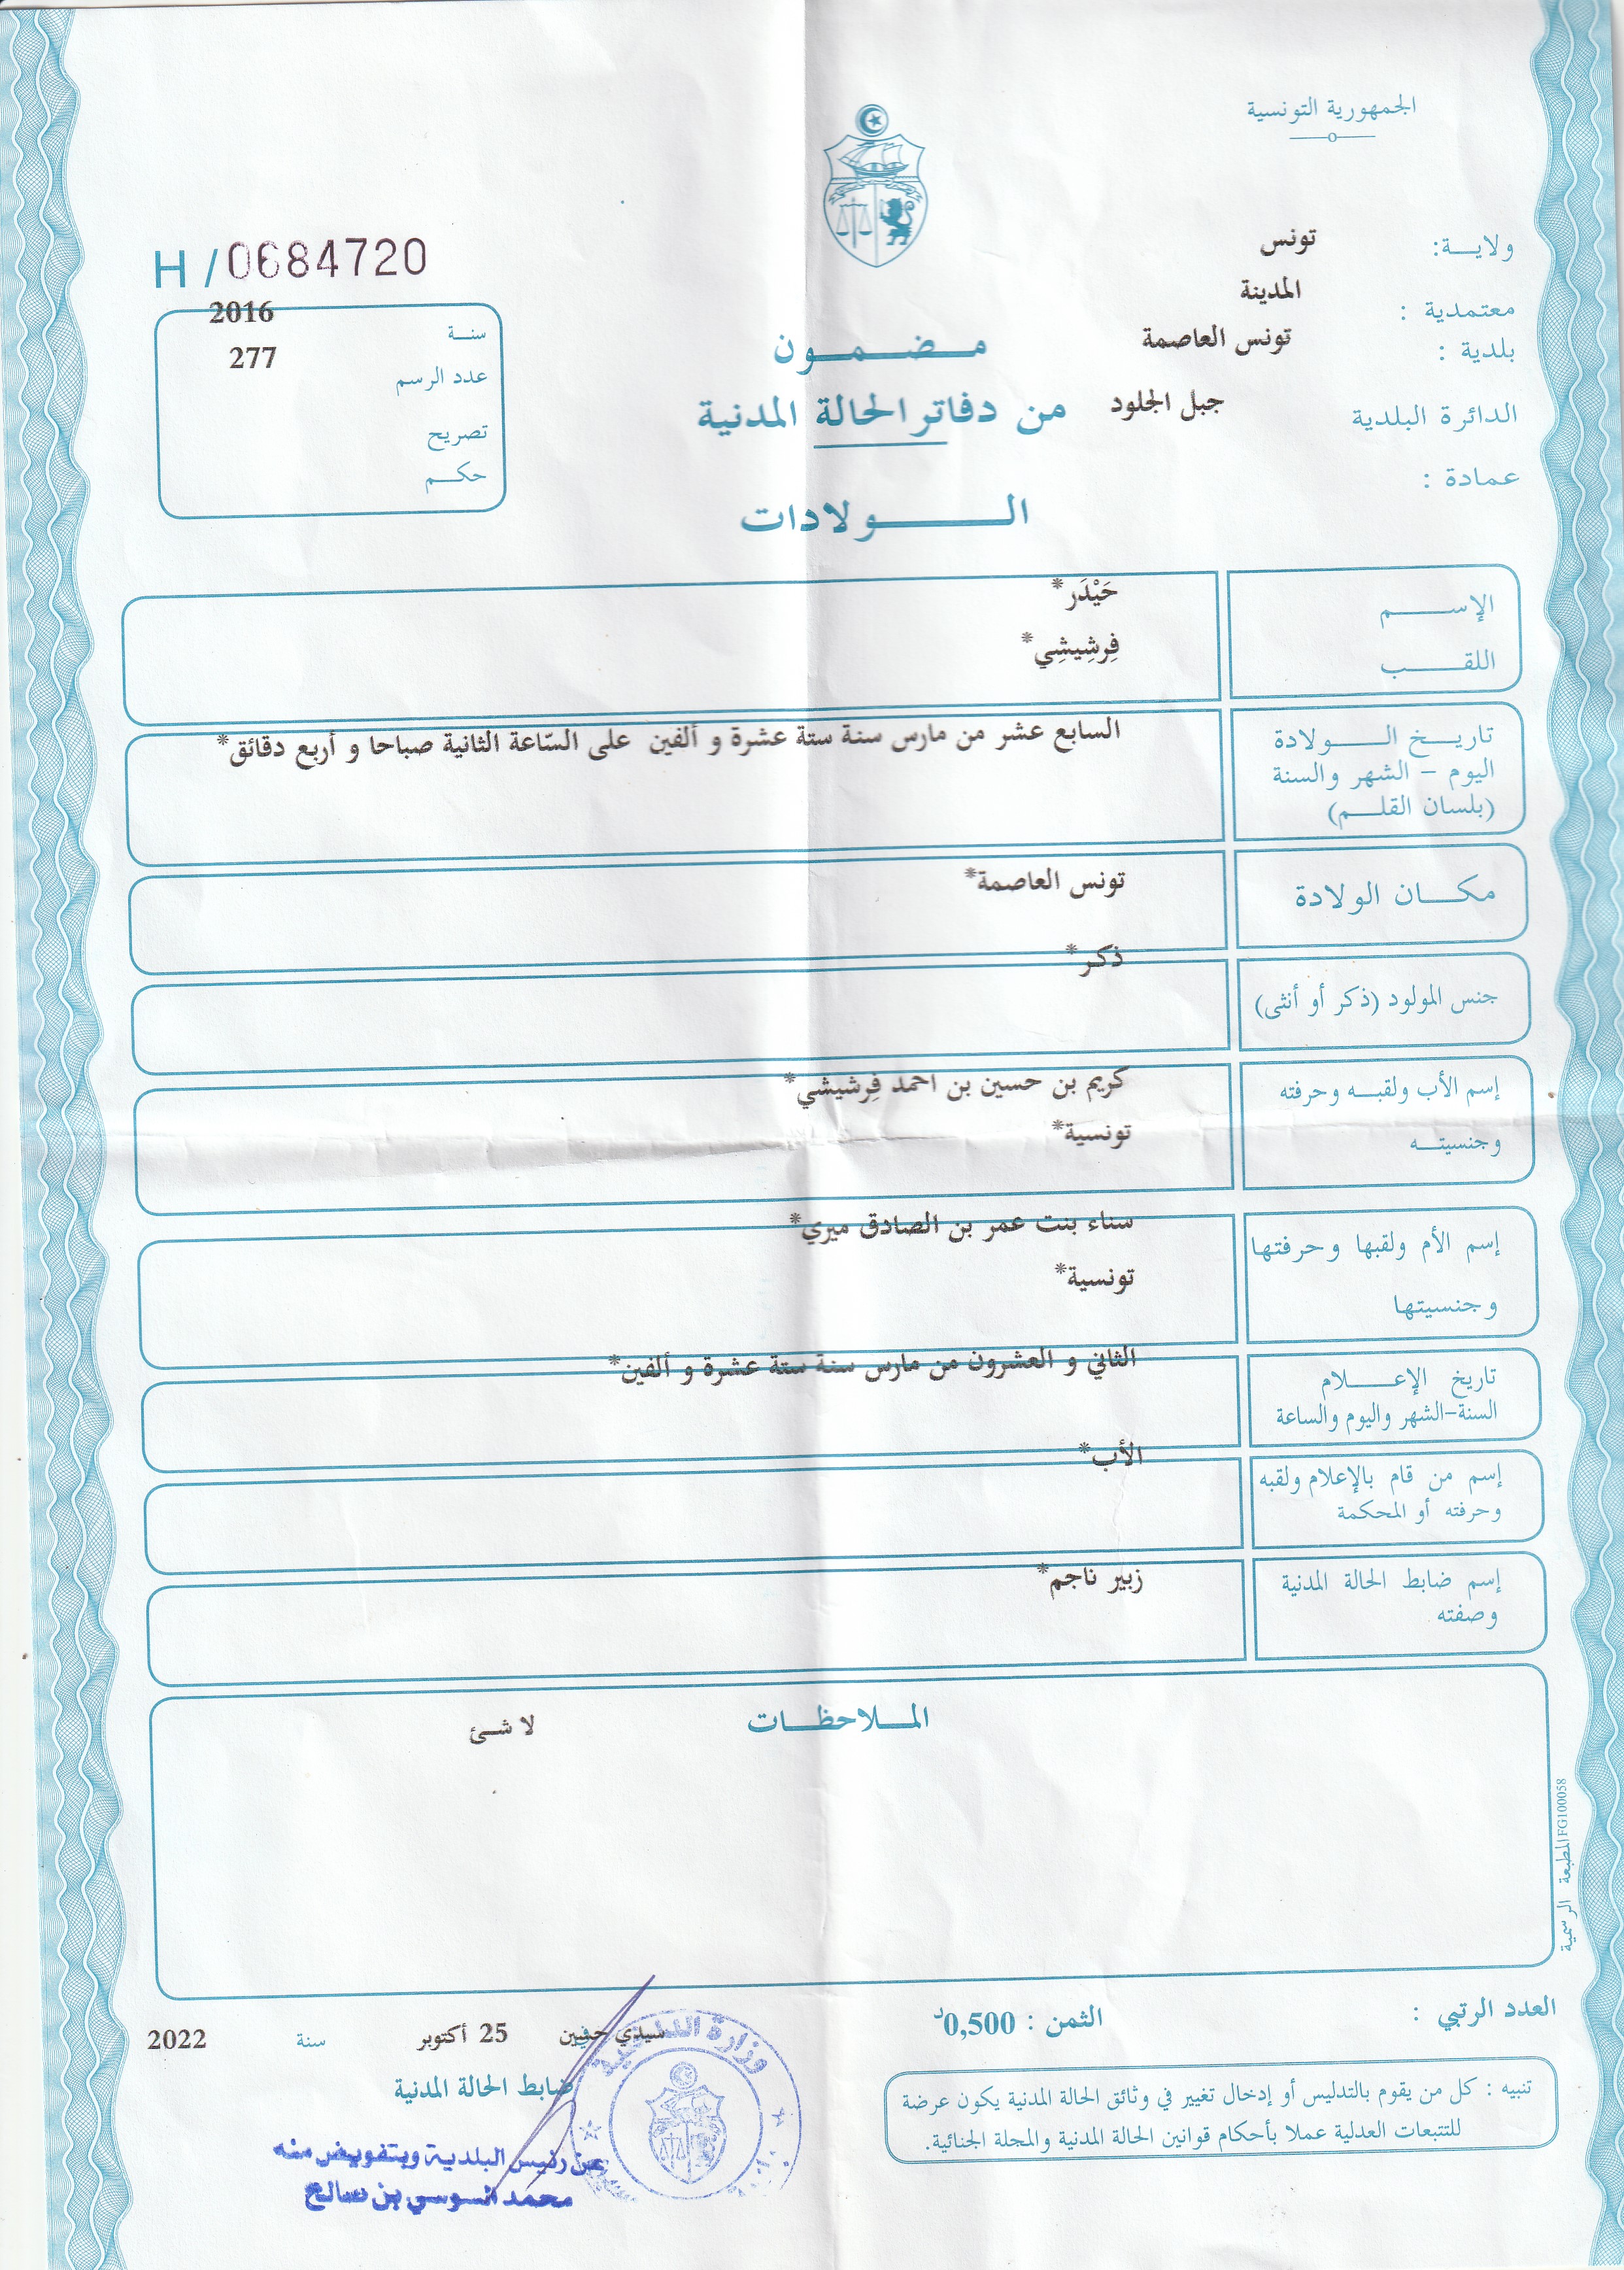 الجمهورية التونسية
ولايـــة: تونس
معتمدية : المدينة
بلدية : تونس العاصمة
الدائرة البلدية جبل الجلود
عمادة :
H/0684720
سنــة 2016
عدد الرسم 277
تصريح
حكــم
مـضـمـون
من دفاتر الحالة المدنية
الــولادات
الإســـم حَيْدَر*
اللقـــب فِرشِيشِي*
تاريــخ الـــولادة السابع عشر من مارس سنة ستة عشرة و ألفين على السّاعة الثانية صباحا و أربع دقائق*
اليوم - الشهر والسنة
(بلسان القلــم)
مكــان الولادة تونس العاصمة*
جنس المولود (ذكر أو أنثى) ذكر*
إسم الأب ولقبــه وحرفته كريم بن حسين بن احمد فِرشيشي*
وجنسيتــه تونسية*
إسم الأم ولقبها وحرفتها سناء بنت عمر بن الصادق ميري*
وجنسيتها تونسية*
تاريخ الإعـــلام الثاني و العشرون من مارس سنة ستة عشرة و ألفين*
السنة-الشهر واليوم والساعة
إسم من قام بالإعلام ولقبه الأب*
وحرفته أو المحكمة
إسم ضابط الحالة المدنية زبير ناجم*
وصفته
المــلاحظــات
لا شئ
المطبعة الرسمية FG100058
العدد الرتبي :
الثمن : 0,500د
سيدي حسين في 25 أكتوبر سنة 2022
ضابط الحالة المدنية
عن رئيس البلدية وبتفويض منه
محمد السوسي بن صالح
وزارة الداخلية
تنبيه : كل من يقوم بالتدليس أو إدخال تغيير في وثائق الحالة المدنية يكون عرضة
للتتبعات العدلية عملا بأحكام قوانين الحالة المدنية والمجلة الجنائية.